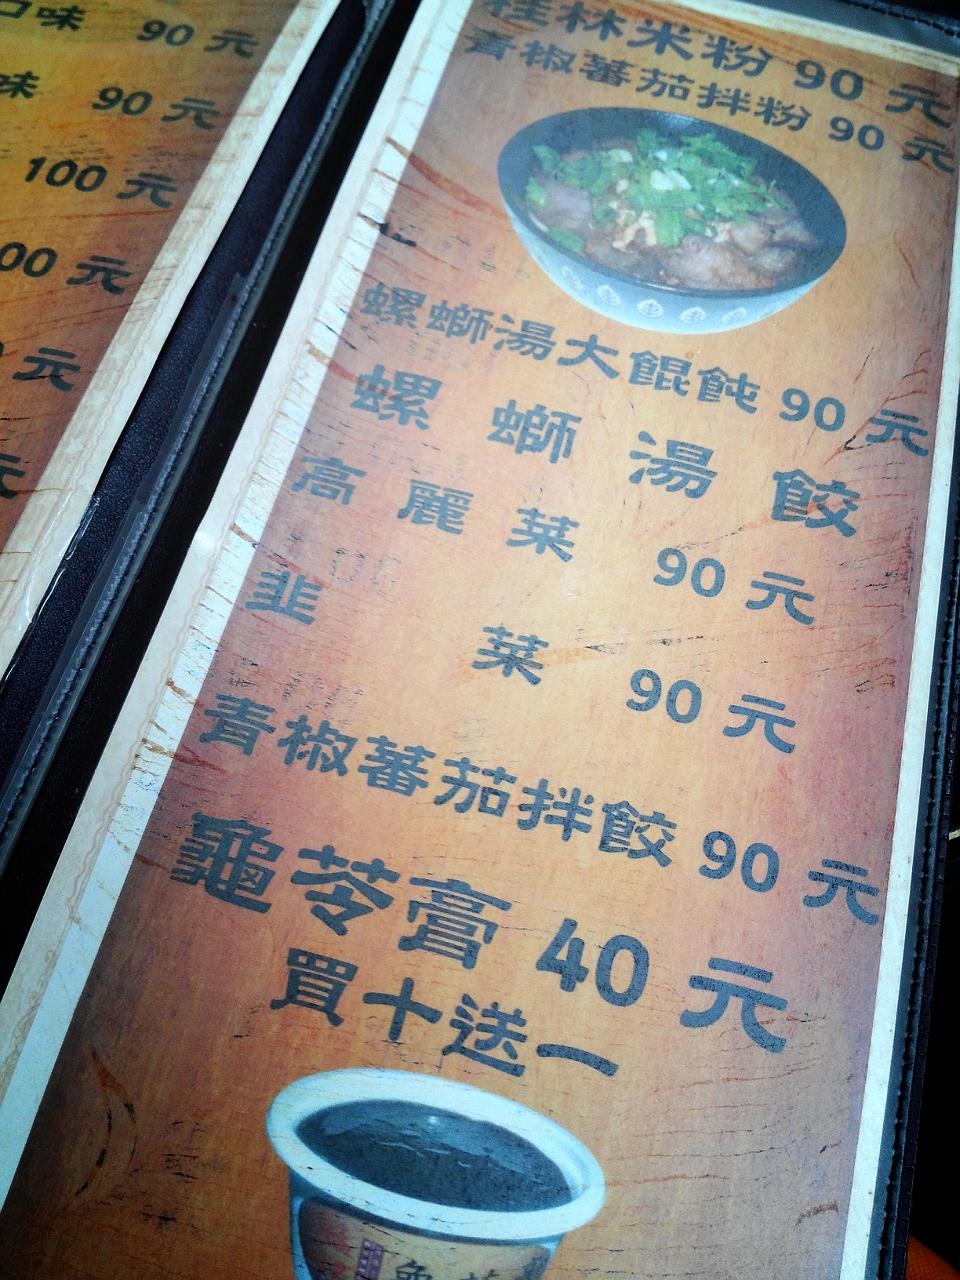 口味 90 元
味 90 元
100 元
00 元
元
元
桂林米粉 90 元
青椒蕃茄拌粉 90 元
螺螄湯大餛飩 90 元
螺螄湯餃
高麗菜 90 元
韭菜 90 元
青椒蕃茄拌餃 90 元
龜苓膏 40 元
買十送一